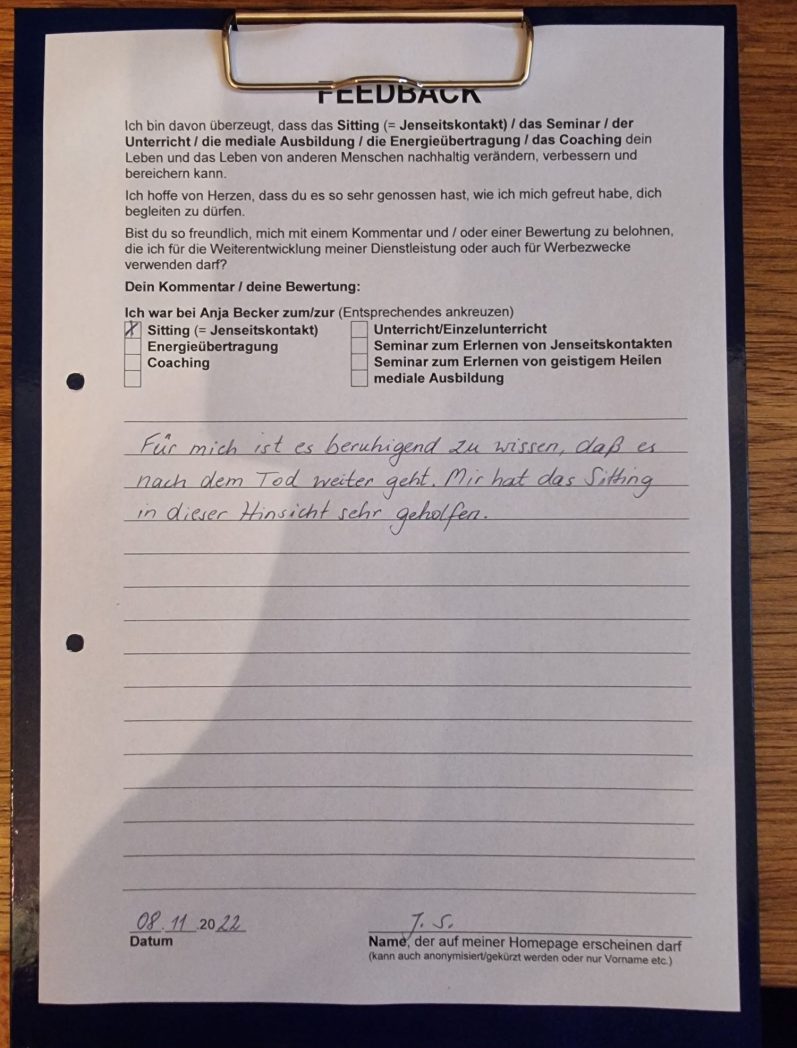 FEEDBACK
Ich bin davon überzeugt, dass das Sitting (= Jenseitskontakt) / das Seminar / der
Unterricht / die mediale Ausbildung / die Energieübertragung / das Coaching dein
Leben und das Leben von anderen Menschen nachhaltig verändern, verbessern und
bereichern kann.
Ich hoffe von Herzen, dass du es so sehr genossen hast, wie ich mich gefreut habe, dich
begleiten zu dürfen.
Bist du so freundlich, mich mit einem Kommentar und / oder einer Bewertung zu belohnen,
die ich für die Weiterentwicklung meiner Dienstleistung oder auch für Werbezwecke
verwenden darf?
Dein Kommentar / deine Bewertung:
Ich war bei Anja Becker zum/zur (Entsprechendes ankreuzen)
X Sitting (= Jenseitskontakt) Unterricht/Einzelunterricht
Energieübertragung Seminar zum Erlernen von Jenseitskontakten
Coaching Seminar zum Erlernen von geistigem Heilen
mediale Ausbildung
Für mich ist es beruhigend zu wissen, daß es
nach dem Tod weiter geht. Mir hat das Sitting
in dieser Hinsicht sehr geholfen.
08.11.2022 J. S.
Datum Name, der auf meiner Homepage erscheinen darf
(kann auch anonymisiert/gekürzt werden oder nur Vorname etc.)